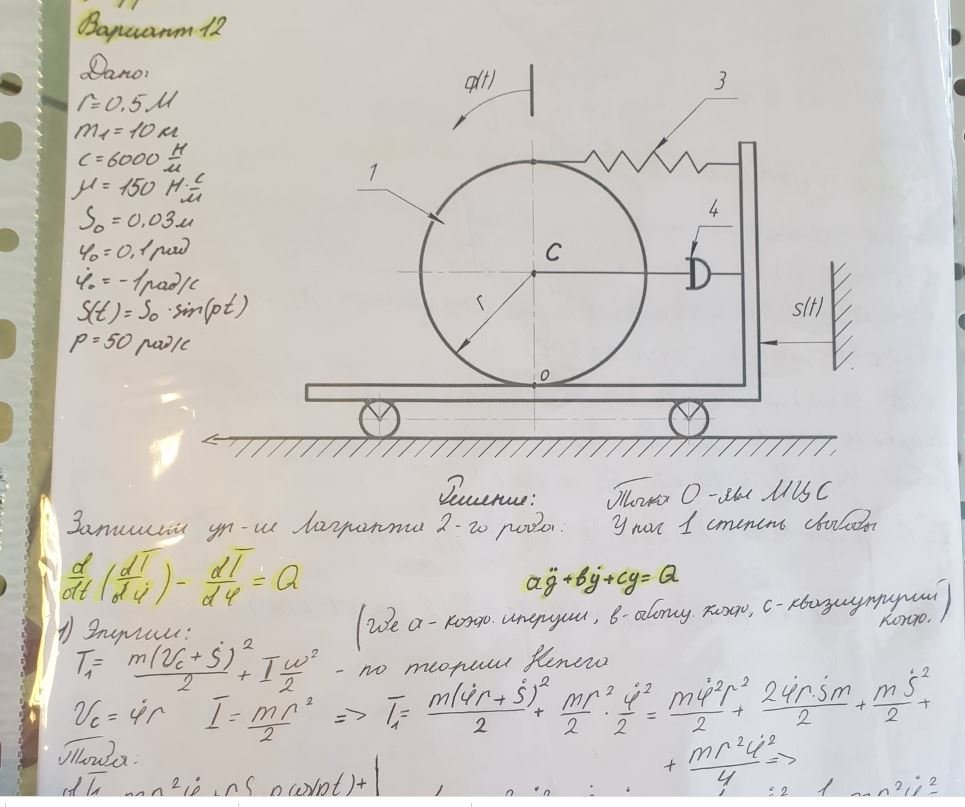 Вариант 12
Дано:
r = 0.5 м
m₁ = 10 кг
c = 6000 Н/м
μ = 150 Н·с/м
S₀ = 0,03 м
φ₀ = 0,1 рад
φ̇₀ = -1 рад/с
S(t) = S₀ · sin(pt)
p = 50 рад/с
φ(t)
3
1
4
C
r
s(t)
O
Решение: Точка O - явл МЦС
Запишем ур-ие Лагранжа 2-го рода: У нас 1 степень свободы
d/dt (dT/dφ̇) - dT/dφ = Q aÿ + bẏ + cy = Q
1) Энергии: (где a - коэф. инерции, b - обобщ. коэф, c - квазиупругий коэф.)
T₁ = m(V_c + Ṡ)²/2 + Iω²/2 - по теореме Кенега
V_c = φ̇r I = mr²/2 => T₁ = m(φ̇r + Ṡ)²/2 + mr²/2 · φ̇²/2 = mφ̇²r²/2 + 2φ̇r·Ṡm/2 + mṠ²/2 +
+ mr²φ̇²/4 =>
Тогда: